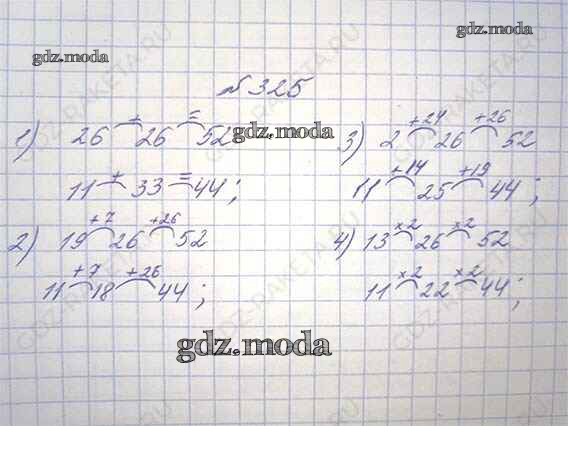 gdz.moda
gdz.moda
№325
1) 26 + 26 = 52
gdz.moda
11 + 33 = 44;
2) 19 +7 26 +26 52
11 +7 18 +26 44;
3) 2 +24 26 +26 52
11 +14 25 +19 44;
4) 13 ×2 26 ×2 52
11 ×2 22 ×2 44;
gdz.moda
GDZ-RAKETA.RU